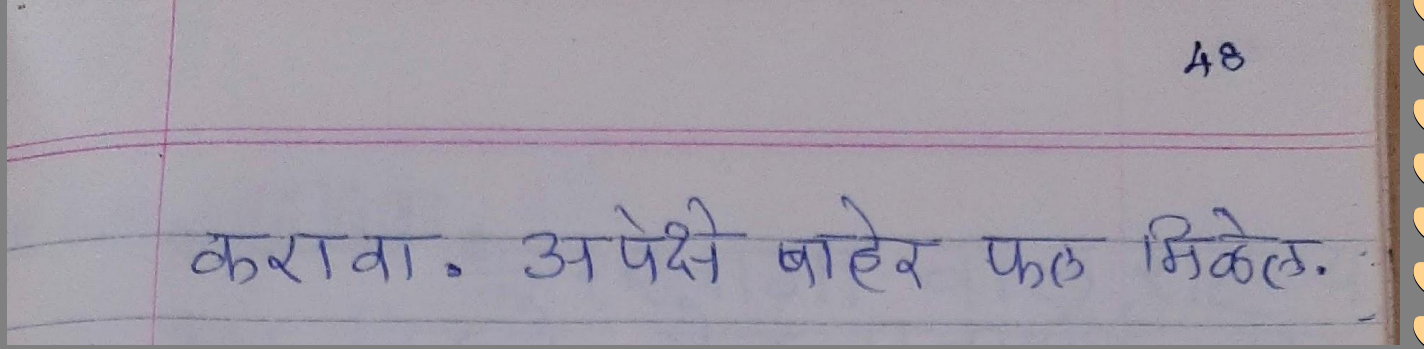 48
करावा. अपेक्षे बाहेर फल मिळेल.